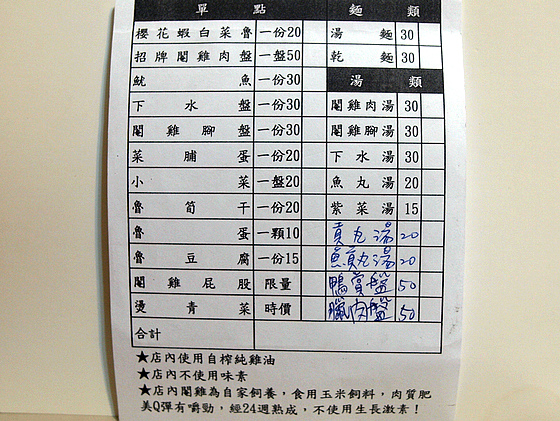 單點 麵類
櫻花蝦白菜魯 一份20 湯麵 30
招牌閹雞肉盤 一盤50 乾麵 30
魷魚 一份30 湯類
下水盤 一份30 閹雞肉湯 30
閹雞腳盤 一份30 閹雞腳湯 30
菜脯蛋 一份30 下水湯 30
小菜 一盤20 魚丸湯 20
魯筍干 一份20 紫菜湯 15
魯蛋 一顆10 貢丸湯 20
魯豆腐 一份15 魚貢丸湯 20
閹雞屁股 限量 鴨賞盤 50
燙青菜 時價 臘肉盤 50
合計
★店內使用自榨純雞油
★店內不使用味素
★店內閹雞為自家飼養，食用玉米飼料，肉質肥
美Q彈有嚼勁，經24週熟成，不使用生長激素！